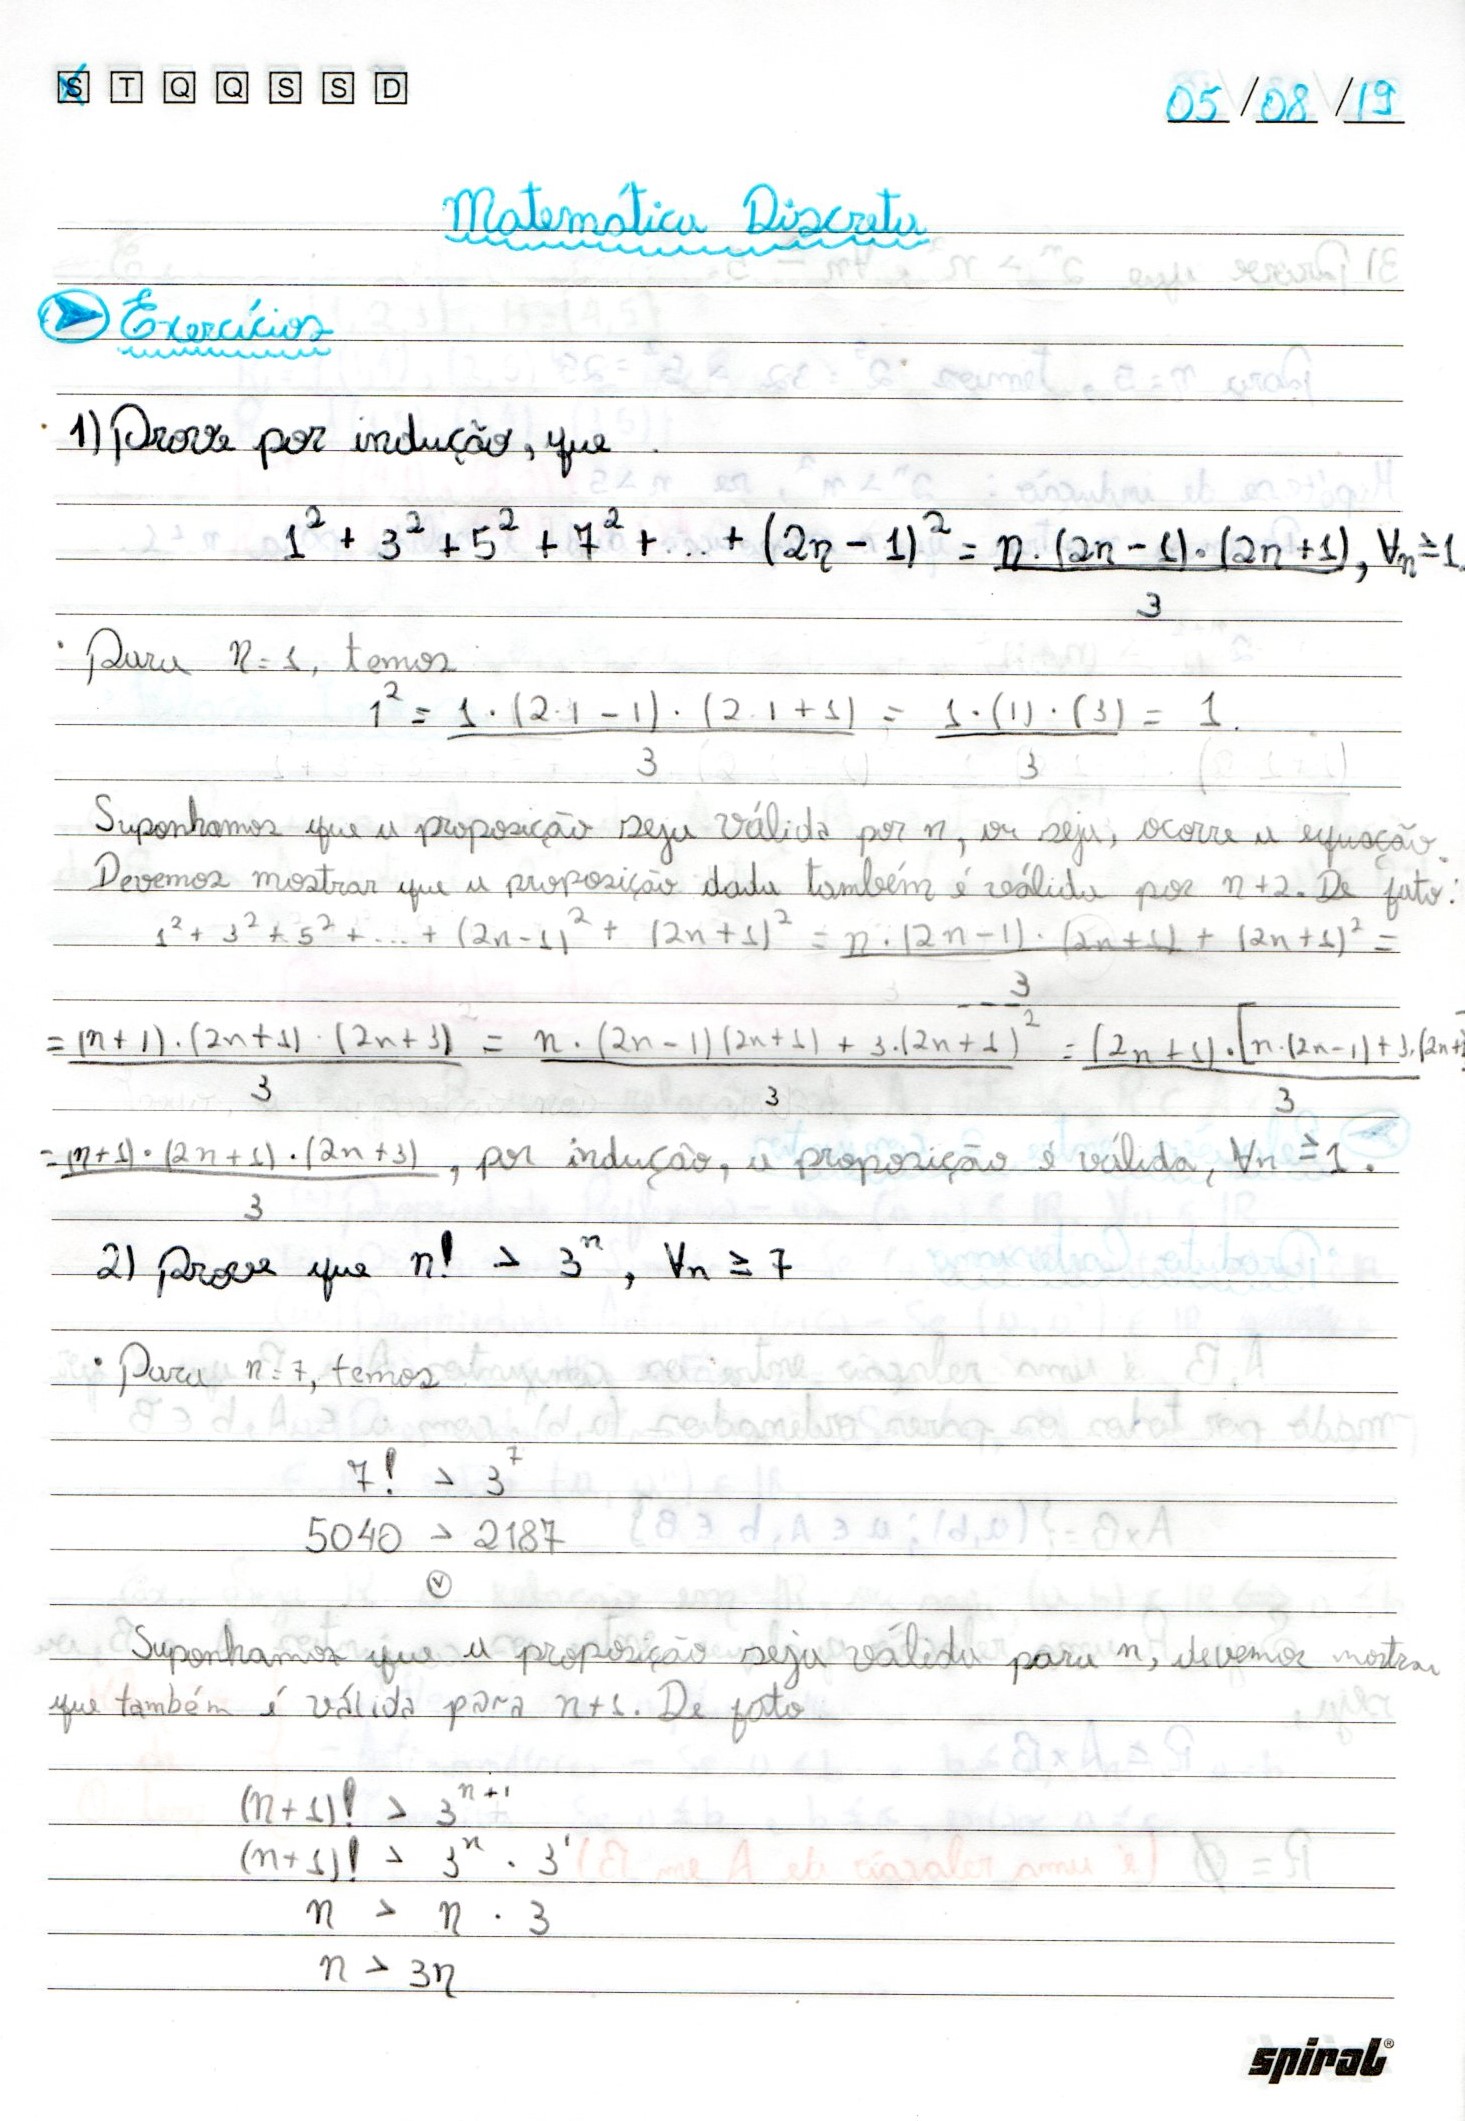 S T Q Q S S D
05/08/19
Matemática Discreta
Exercícios
1) Prove por indução, que
1² + 3² + 5² + 7² + ... + (2n - 1)² = n·(2n - 1)·(2n + 1), ∀n ≥ 1.
3
· Para n = 1, temos
1² = 1·(2·1 - 1)·(2·1 + 1) = 1·(1)·(3) = 1.
3 3
Suponhamos que a proposição seja válida por n, ou seja, ocorre a equação.
Devemos mostrar que a proposição dada também é válida por n+2. De fato:
1² + 3² + 5² + ... + (2n-1)² + (2n+1)² = n·(2n-1)·(2n+1) + (2n+1)² =
3
= (n+1)·(2n+1)·(2n+3) = n·(2n-1)(2n+1) + 3·(2n+1)² = (2n+1)·[n·(2n-1)+3·(2n+
3 3 3
= (n+1)·(2n+1)·(2n+3), por indução, a proposição é válida, ∀n ≥ 1.
3
2) Prove que n! > 3ⁿ, ∀n ≥ 7
· Para n = 7, temos
7! > 3⁷
5040 > 2187
V
Suponhamos que a proposição seja válida para n, devemos mostrar
que também é válida para n+1. De fato
(n+1)! > 3ⁿ⁺¹
(n+1)! > 3ⁿ · 3¹
n > n · 3
n > 3n
spiral®